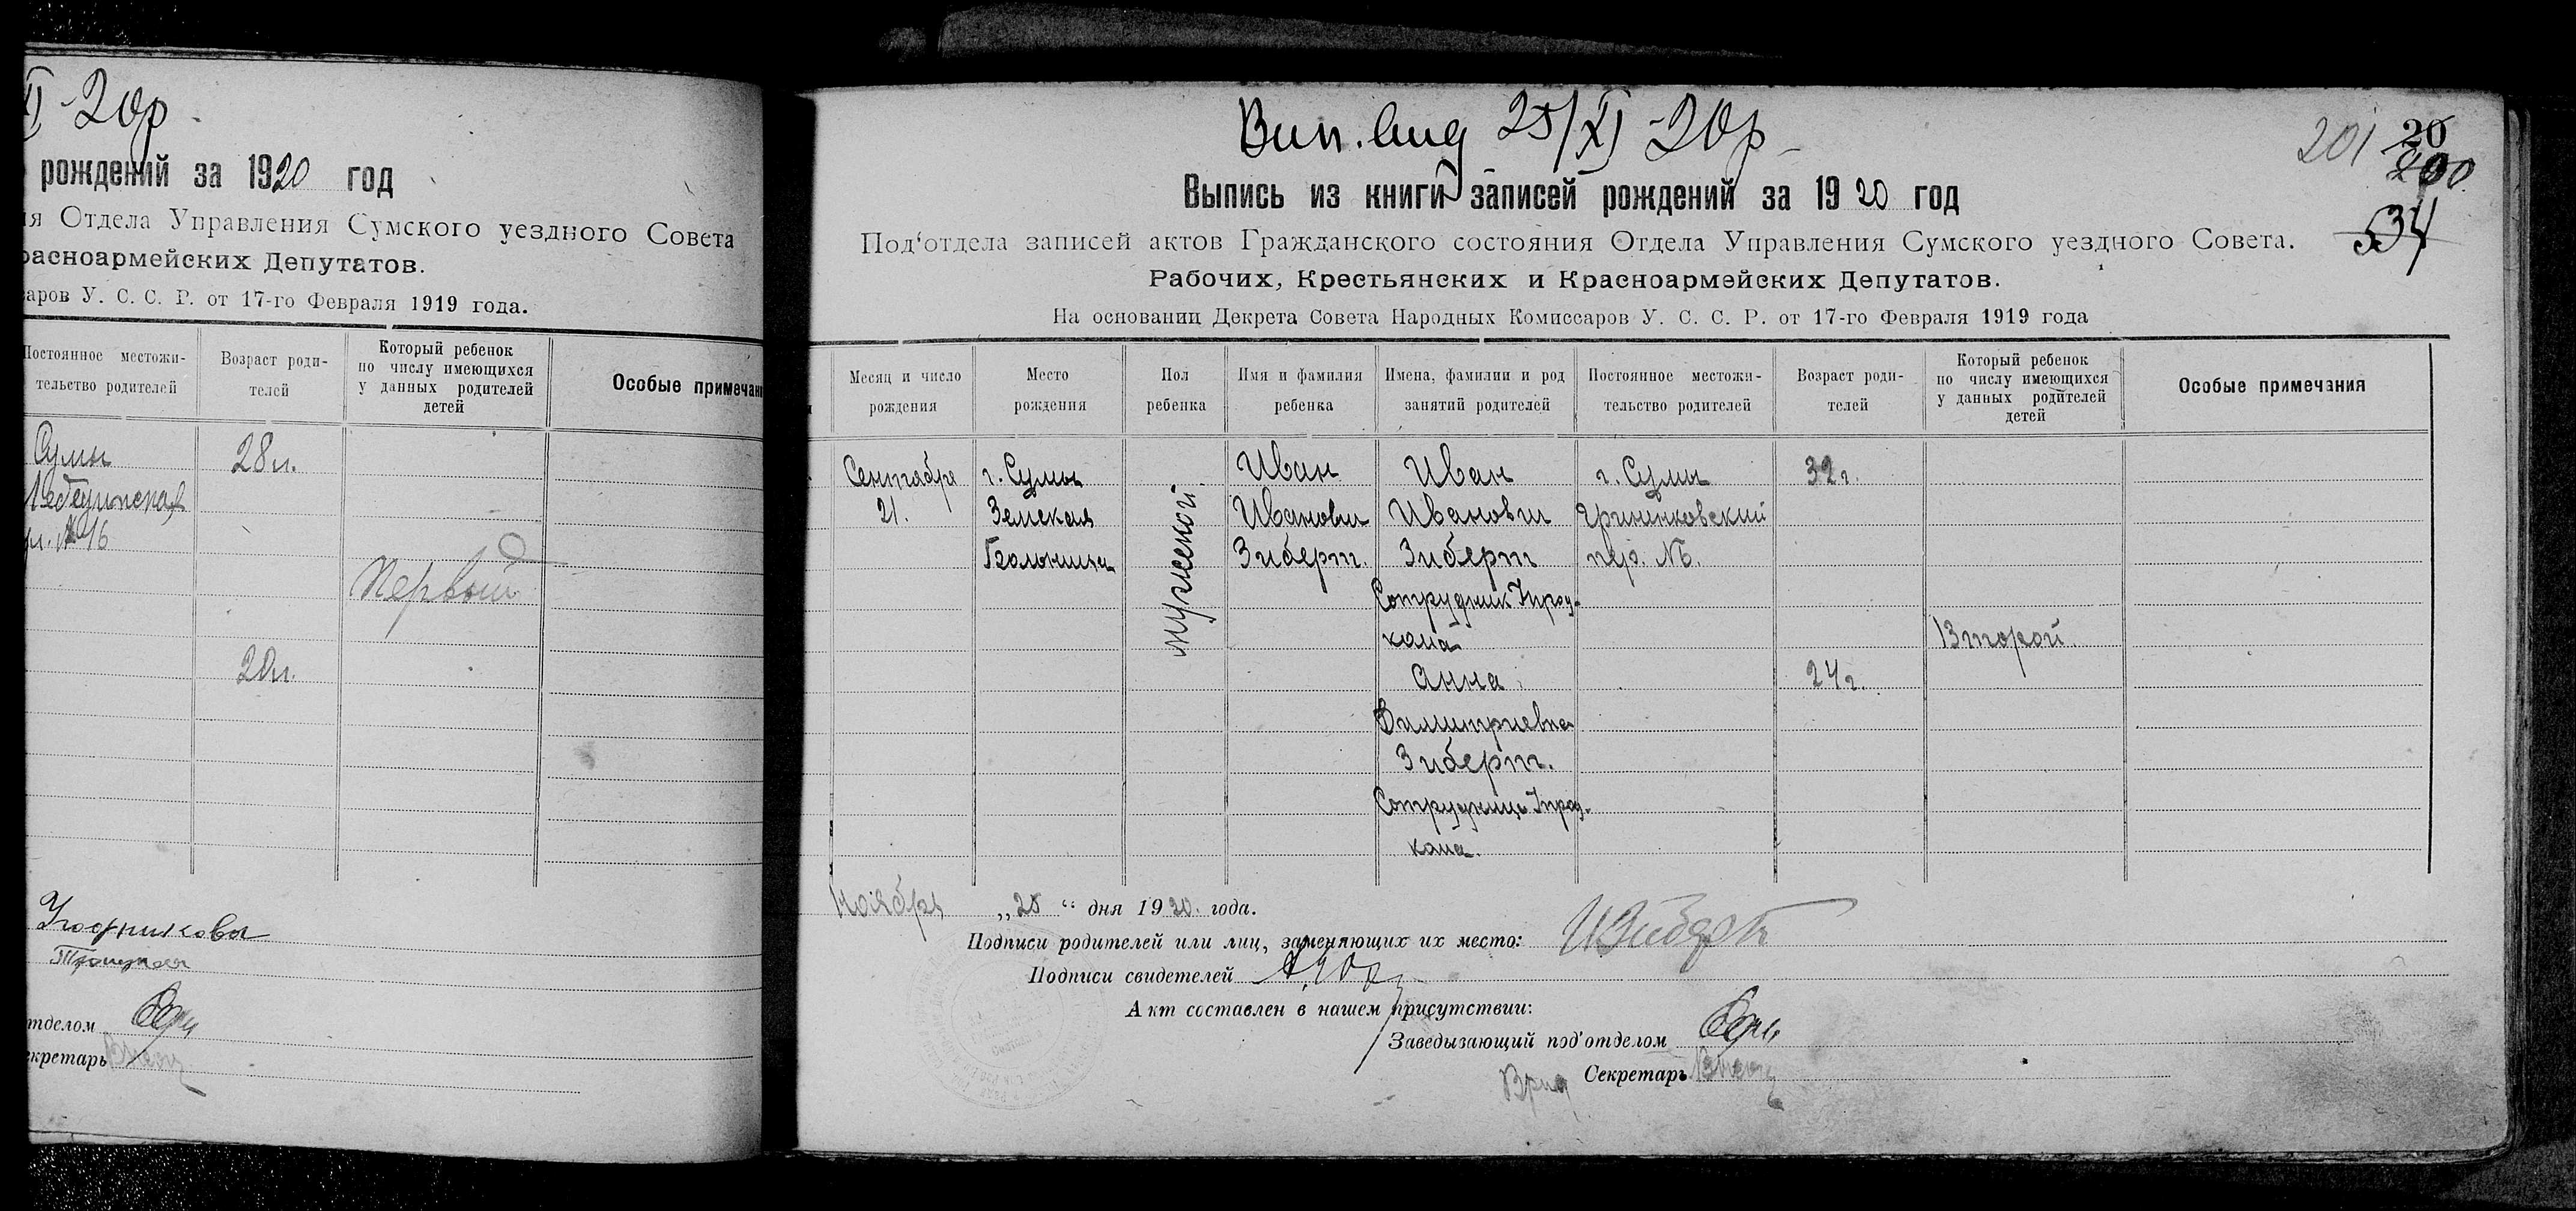 XI -20р
рождений за 1920 год
ия Отдела Управления Сумского уездного Совета
расноармейских Депутатов.
саров У. С. С. Р. от 17-го Февраля 1919 года.
Постоянное местожи-
тельство родителей
Возраст роди-
телей
Который ребенок
по числу имеющихся
у данных родителей
детей
Особые примечан
Сумы
28 л.
№ 16
Первый
20 л.
отделом
екретарь
Вип. 25/XI -20р
201
20
534
Выпись из книги записей рождений за 1920 год
Под'отдела записей актов Гражданского состояния Отдела Управления Сумского уездного Совета.
Рабочих, Крестьянских и Красноармейских Депутатов.
На основании Декрета Совета Народных Комиссаров У. С. С. Р. от 17-го Февраля 1919 года
Месяц и число
рождения
Место
рождения
Пол
ребенка
Имя и фамилия
ребенка
Имена, фамилии и род
занятий родителей
Постоянное местожи-
тельство родителей
Возраст роди-
телей
Который ребенок
по числу имеющихся
у данных родителей
детей
Особые примечания
Сентября
21.
г. Сумы
Земская
Больница
мужеской
Иван
Иванович
Зиберт.
Иван
Иванович
Зиберт
Сотрудник Упрод-
кома
Анна
Димитриевна
Зиберт.
Сотрудница Упрод-
кома.
г. Сумы
пер. №.
32 г.
24 г.
Второй.
Ноября „25“ дня 1920. года.
Подписи родителей или лиц, заменяющих их место: ИЗиберт
Подписи свидетелей
Акт составлен в нашем присутствии:
Заведывающий под'отделом
Врид Секретарь